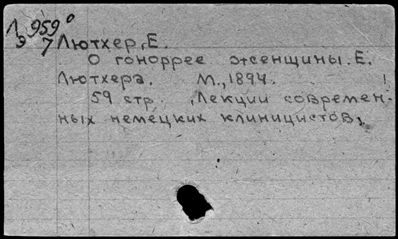 Л 959⁰
Э 7
Лютхер, Е.
О гоноррее женщины. Е.
Лютхера. М., 1894.
59 стр. (Лекции современ-
ных немецких клиницистов,